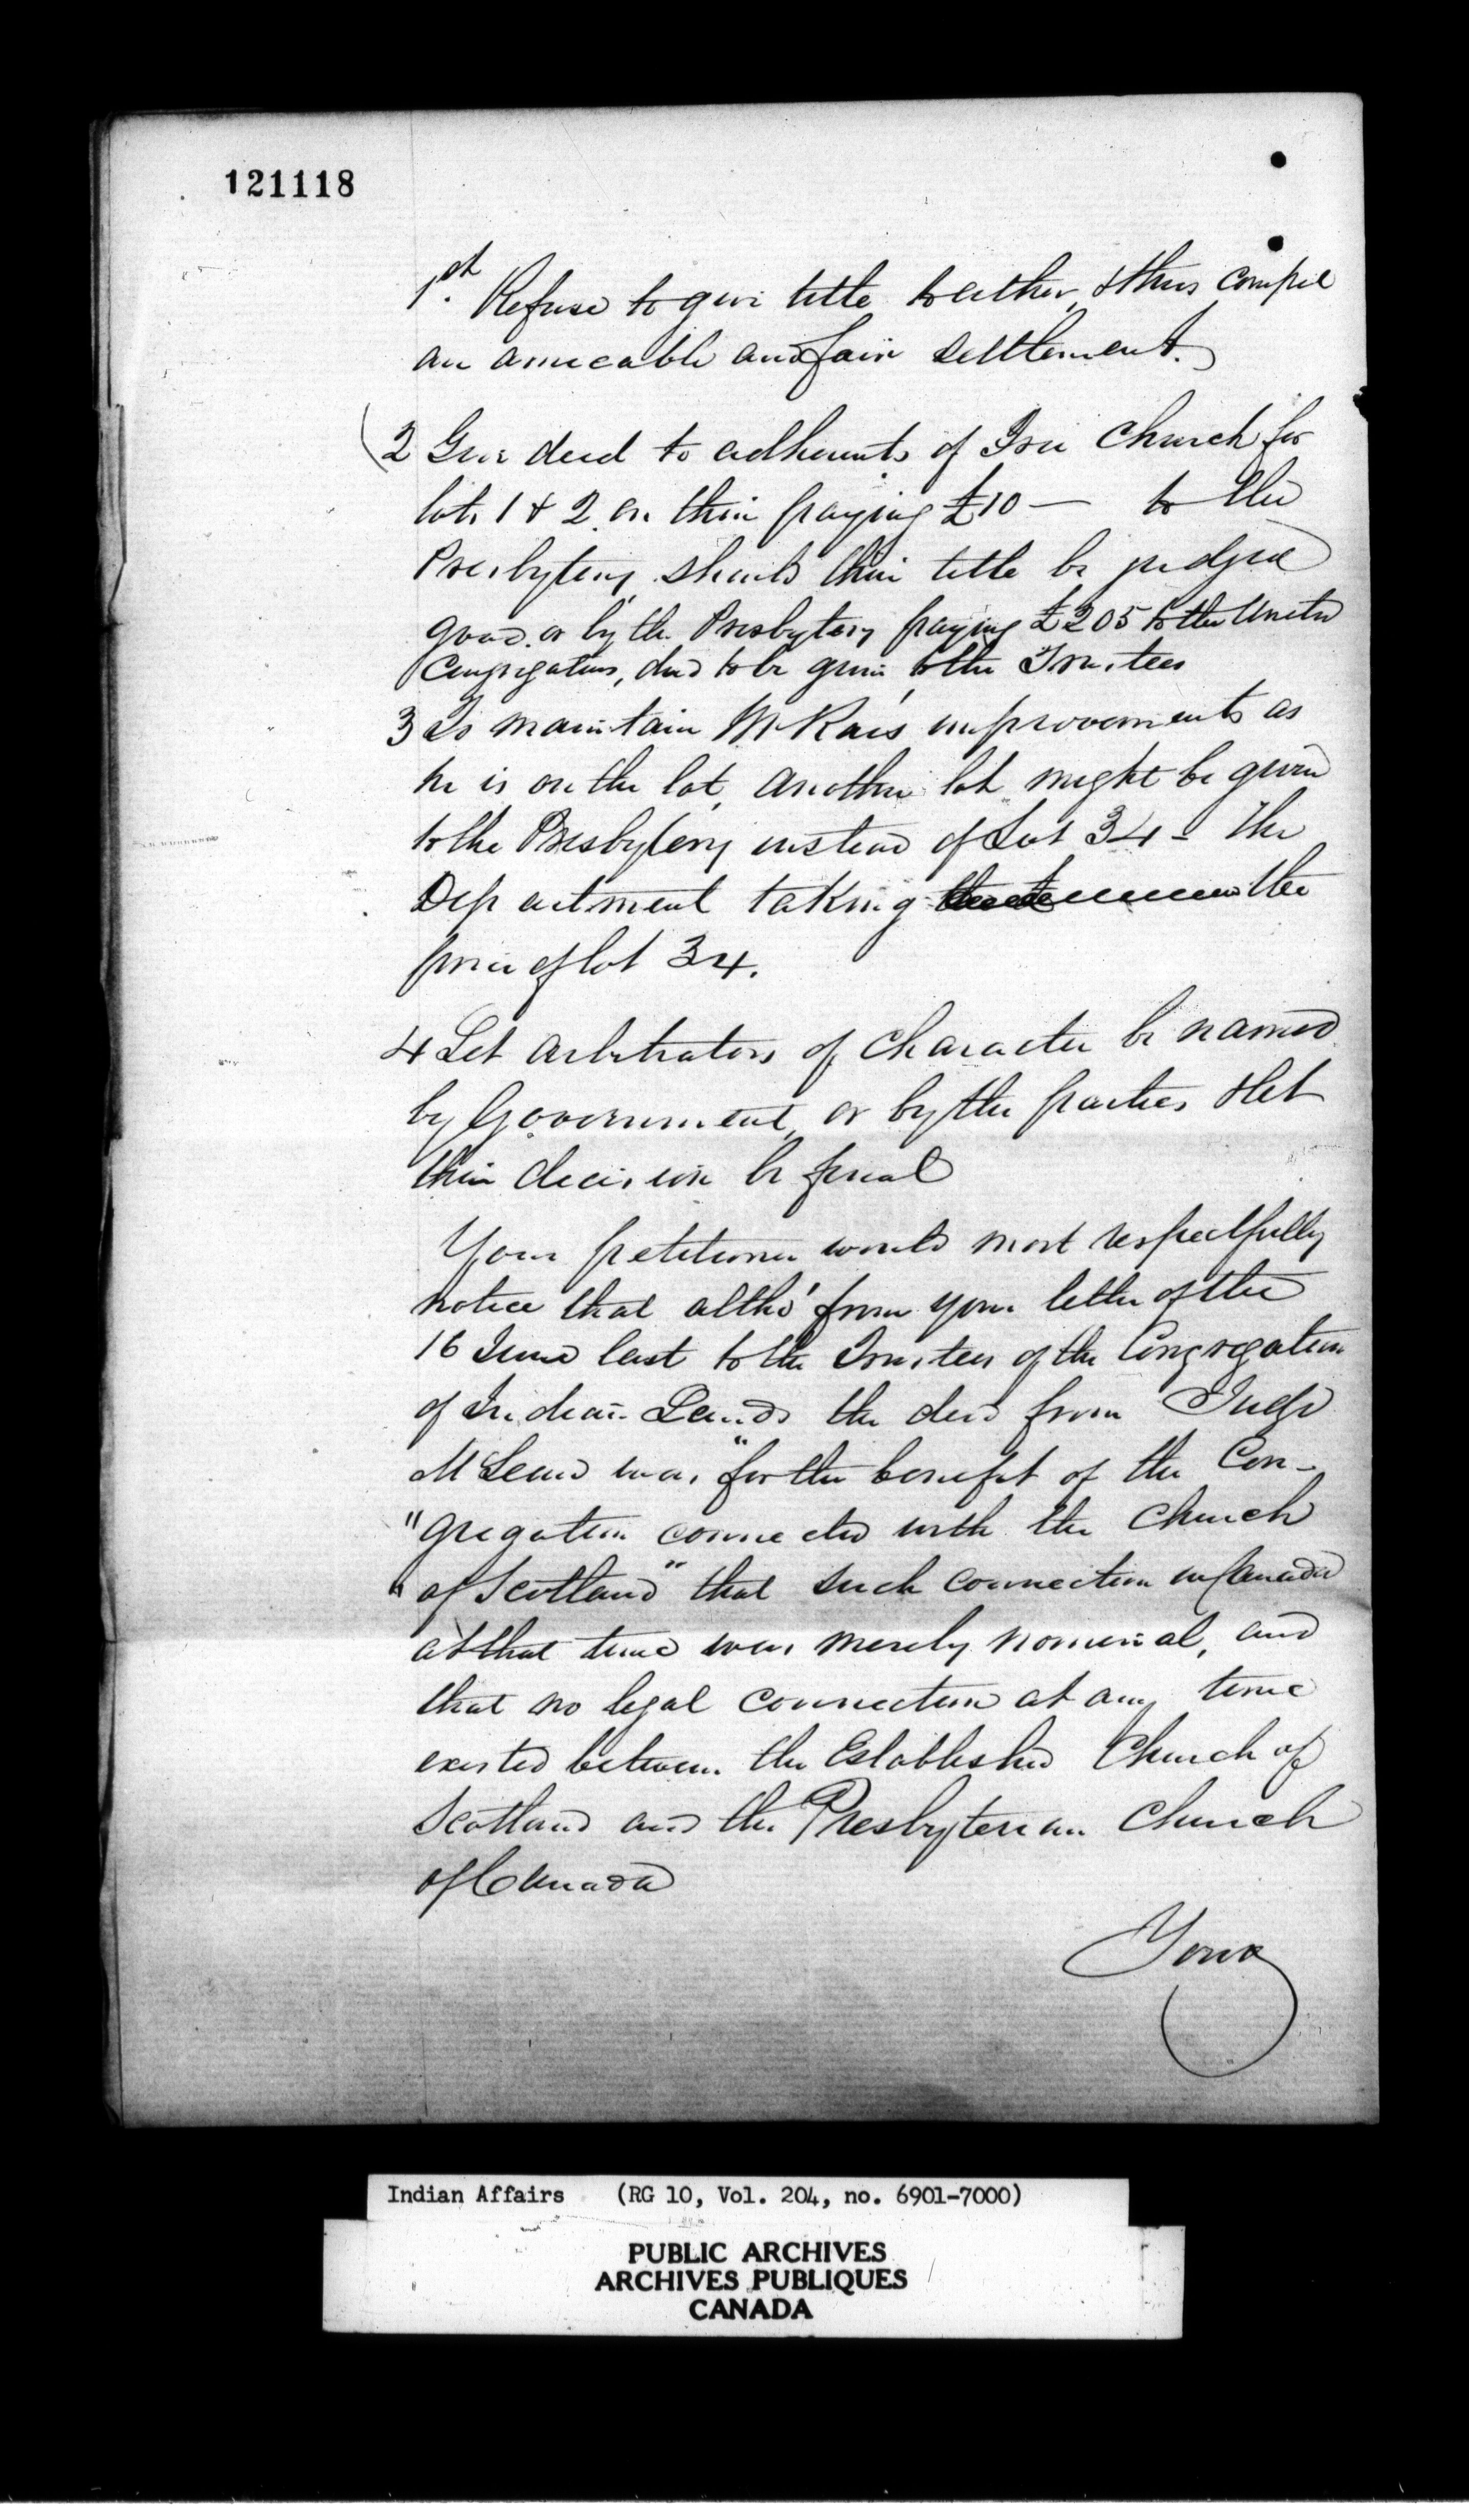 121118
1st. Refuse to give title to either, & thus compel
an amicable and fair settlement.
(2 Give deed to adherents of Free Church for
lots 1 & 2 on their paying £10 — to the
Presbytery, should their title be judged
good. or by the Presbytery paying £205 to the United
Congregation, deed to be given to the Trustees
3 To maintain McRae's improvements as
he is on the lot, another lot might be given
to the Presbytery instead of Lot 34 - The
Department taking the
price of lot 34.
4 Let arbitrators of character be named
by Government, or by the parties & let
their decision be final
Your petitioner would most respectfully
notice that altho' from your letter of the
16 June last to the Trustees of the Congregation
of Indian Lands the deed from Judge
McLean was "for the benefit of the Con-
"gregation connected with the Church
"of Scotland" that such connection in Canada
at that time was merely nominal, and
that no legal connection at any time
existed between the Established Church of
Scotland and the Presbyterian Church
of Canada
Your
Indian Affairs (RG 10, Vol. 204, no. 6901-7000)
PUBLIC ARCHIVES
ARCHIVES PUBLIQUES
CANADA